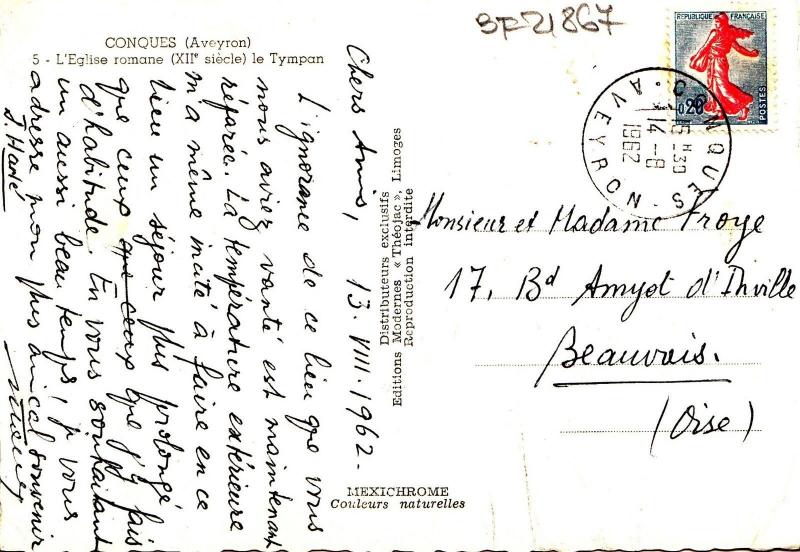 CONQUES (Aveyron)
5 - L'Eglise romane (XIIe siècle) le Tympan
BF21867
REPUBLIQUE FRANÇAISE
0,20
POSTES
CONQUES
AVEYRON
16H30
14-8
1962
Chers Amis, 13.VIII.1962.
L'ignorance de ce lieu que vous
nous aviez vanté est maintenant
réparée. La température extérieure
m'a même incité à faire en ce
lieu un séjour plus prolongé
que ceux que ceux que j'y fais
d'habitude. En vous souhaitant
un aussi beau temps, je vous
adresse mon plus amical souvenir
Distributeurs exclusifs
Editions Modernes « Théojac », Limoges
Reproduction interdite
Monsieur et Madame Troye
17, Bd Amyot d'Inville
Beauvais.
(Oise)
MEXICHROME
Couleurs naturelles